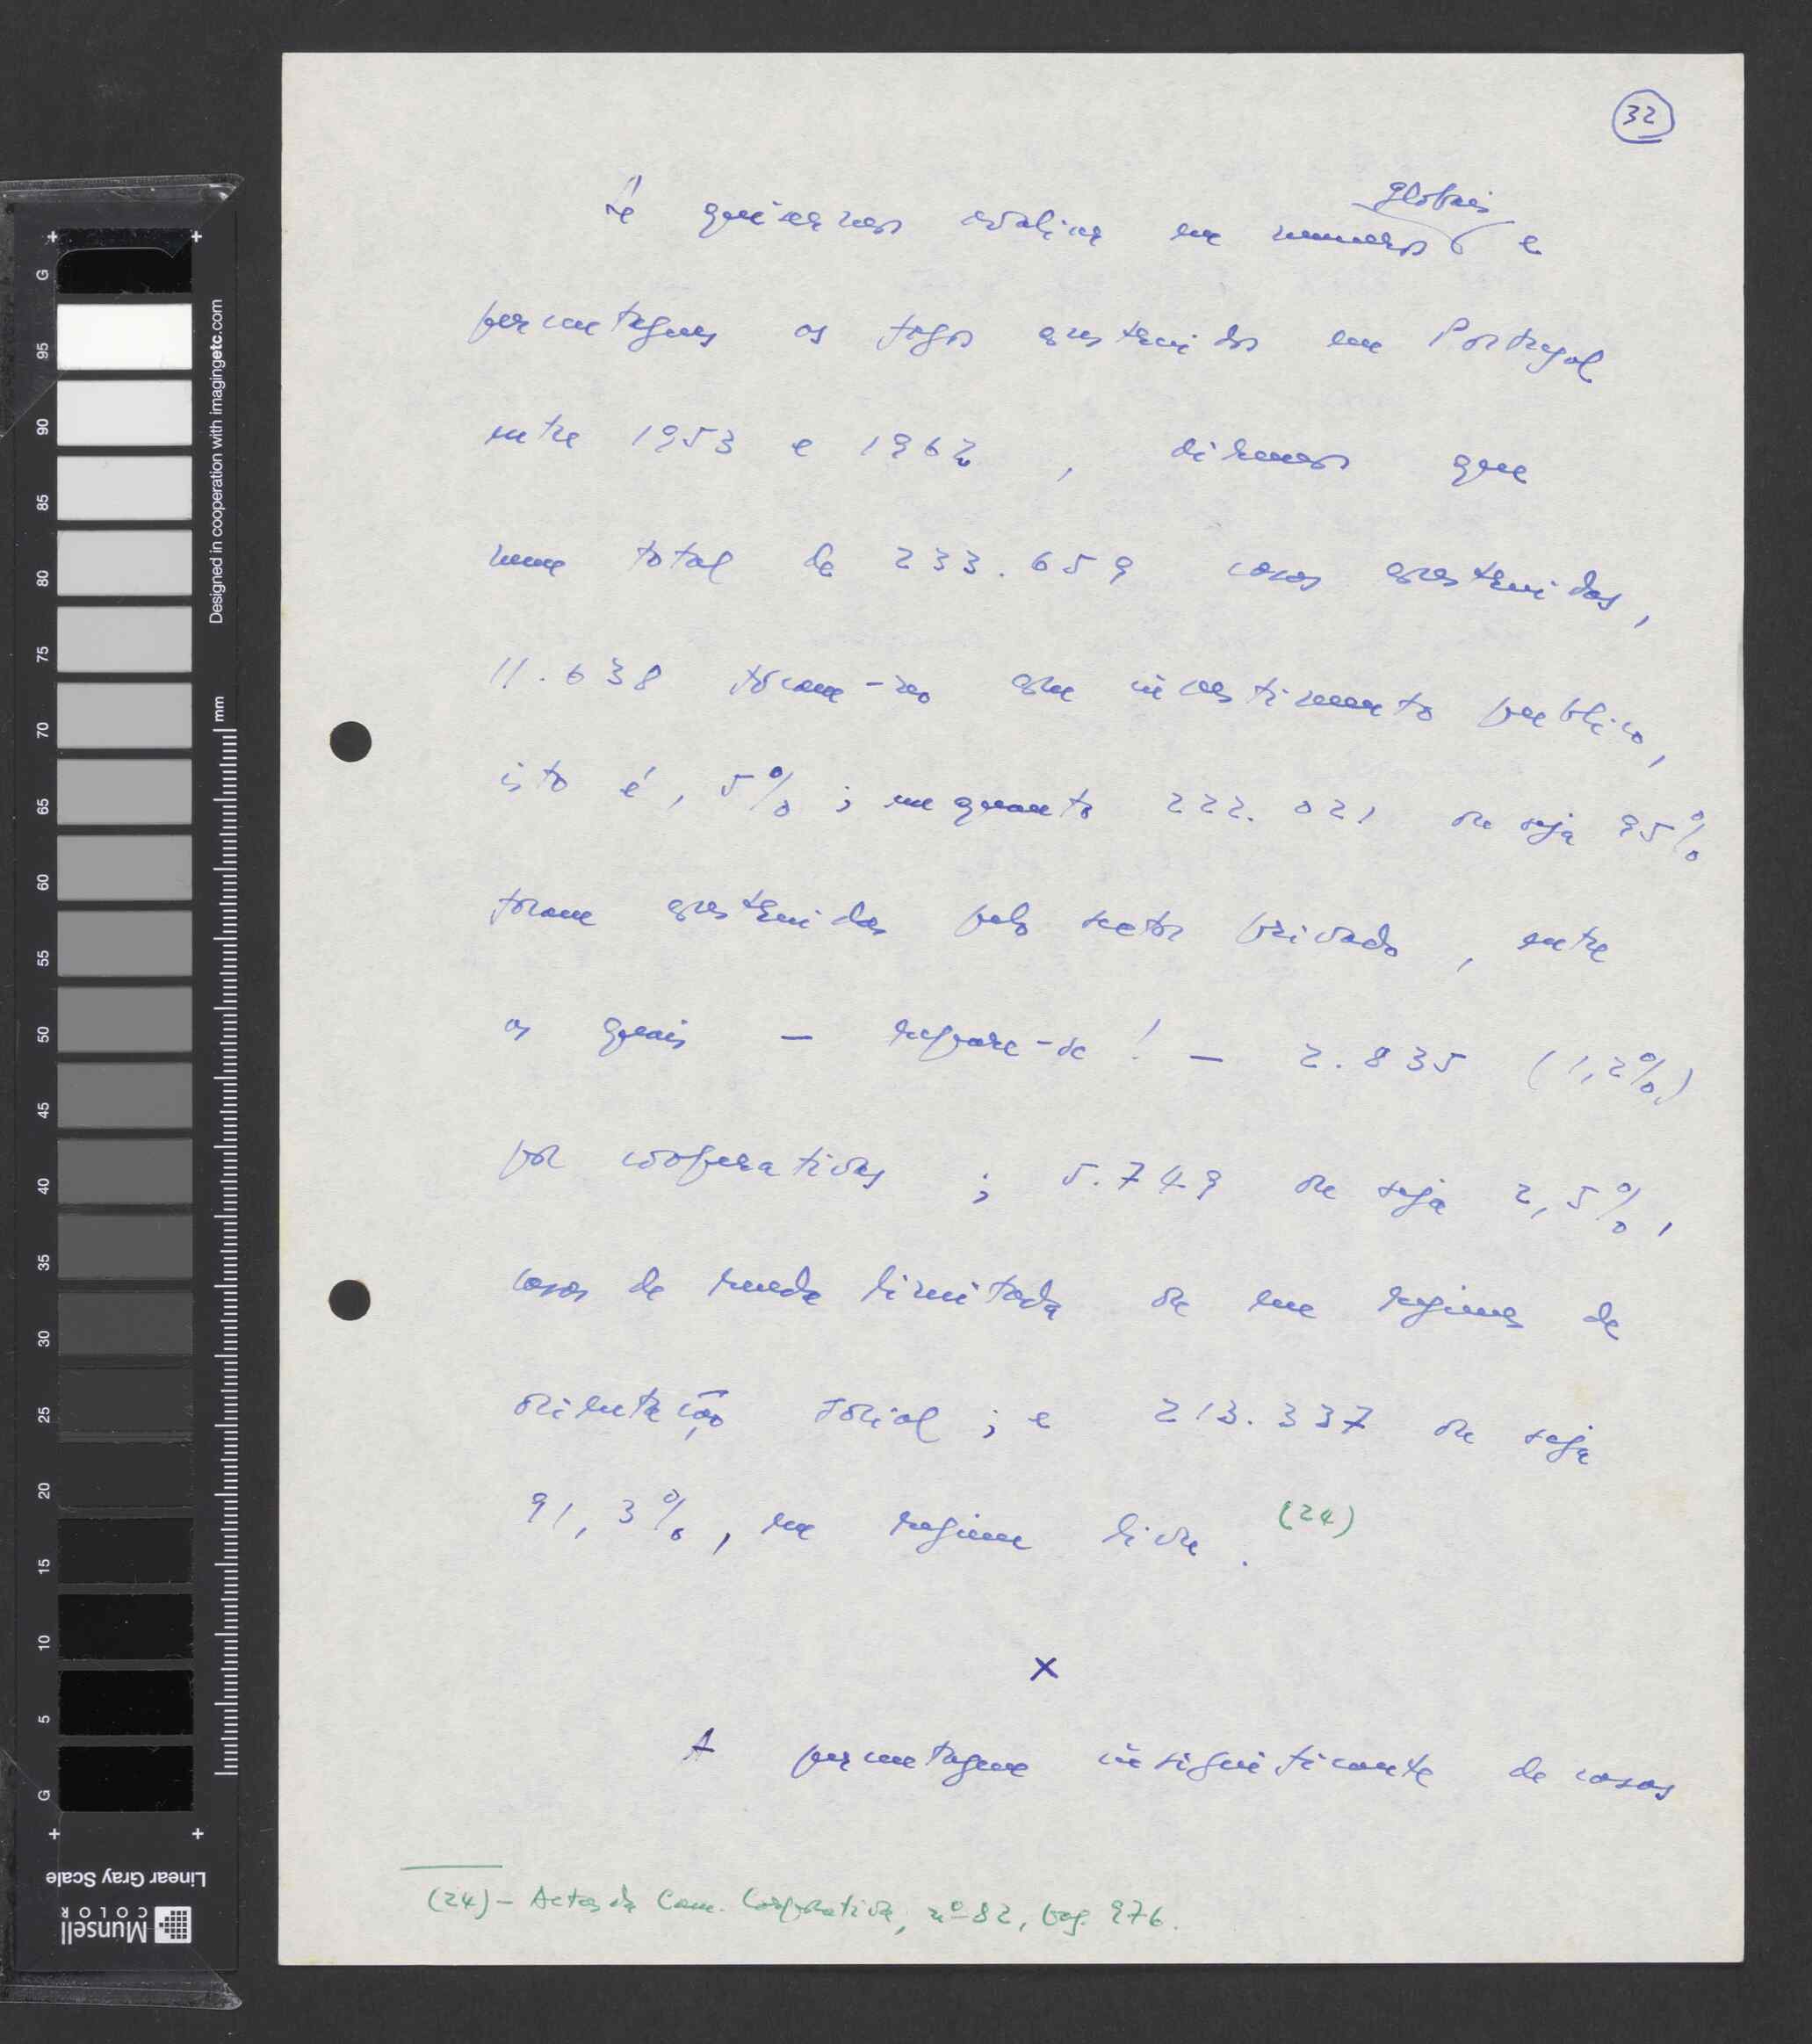 32
Se quisermos avaliar em numeros globais e
percentagens os fogos construidos em Portugal
entre 1953 e 1962, diremos que
num total de 233.659 casas construidas,
11.638 foram-no com investimento publico,
isto é, 5%; enquanto 222.021 ou seja 95%
foram construidas pelo sector privado, entre
os quais — repare-se! — 2.835 (1,2%)
por cooperativas; 5.749 ou seja 2,5%,
casas de renda limitada ou em regimes de
orientação social; e 213.337 ou seja
91,3%, em regime livre. (24)
x
A percentagem insignificante de casas
(24) – Actas da Cam. Corporativa, nº 82, pag. 976.
Designed in cooperation with imagingetc.com
mm
G 95 90 85 80 75 70 65 60 55 50 45 40 35 30 25 20 15 10 5 G
Linear Gray Scale
Munsell
COLOR